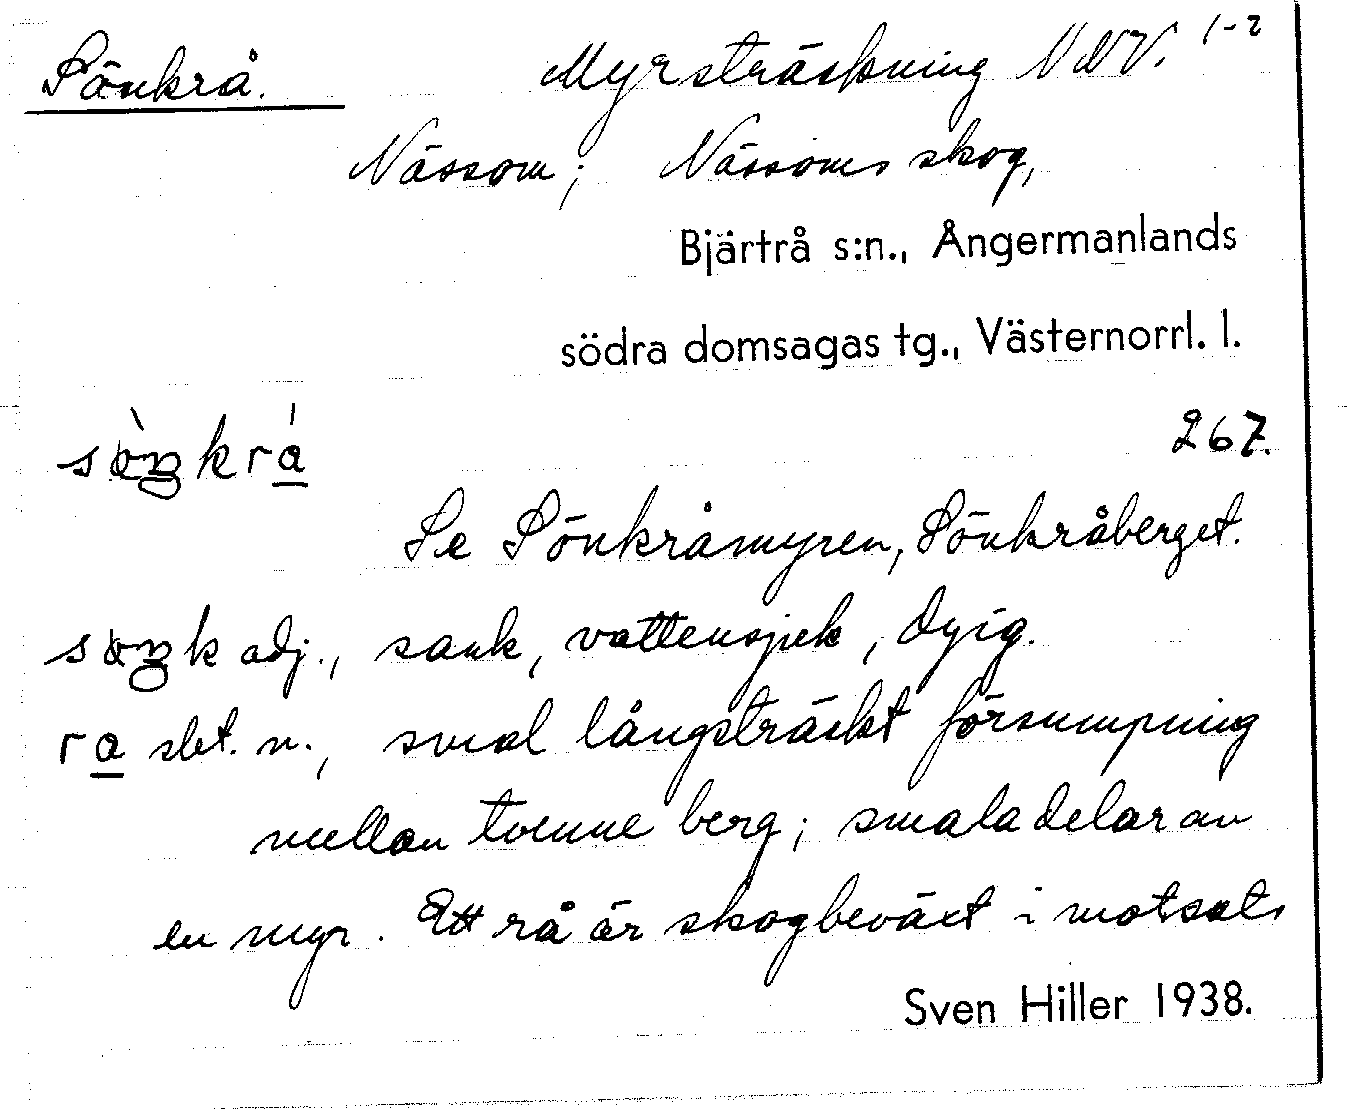 Sönkrå. Myrsträckning NNV. 1-2
Nässom; Nässoms skog,
Bjärtrå s:n., Ångermanlands
södra domsagas tg., Västernorrl. l.
267.
Se Sönkråmyren, Sönkråberget.
adj., sank, vattensjuk, dyig.
sbt. n., smal långsträckt försumpning
mellan tvenne berg; smala delar av
en myr. Ett rå är skogbeväxt i motsats
Sven Hiller 1938.